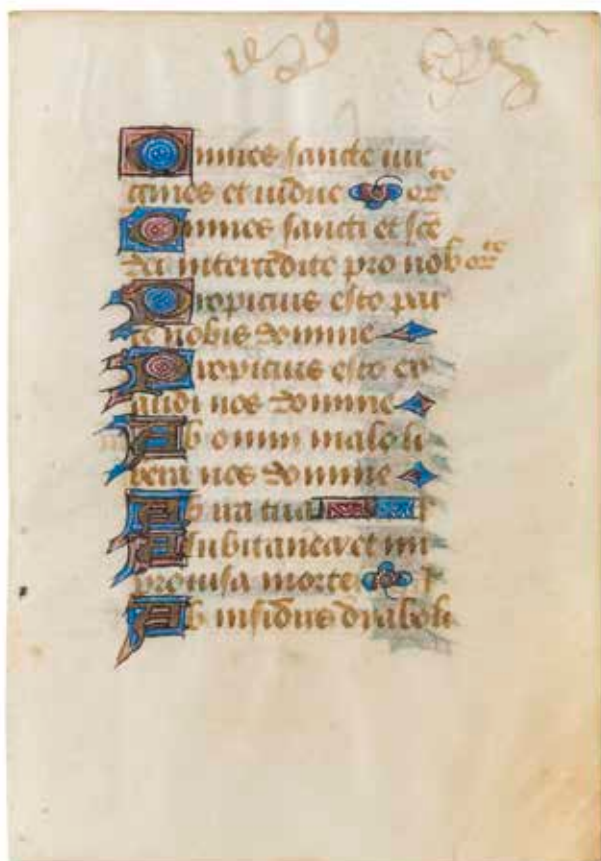 Omnes sancte vir
gines et vidue orate
Omnes sancti et sce
dei intercedite pro nob orte
Propicius esto par
ce nobis domine
Propicius esto ex
audi nos domine
Ab omni malo li
bera nos domine
Ab ira tua l
A subitanea et im
provisa morte l
Ab insidiis dyaboli